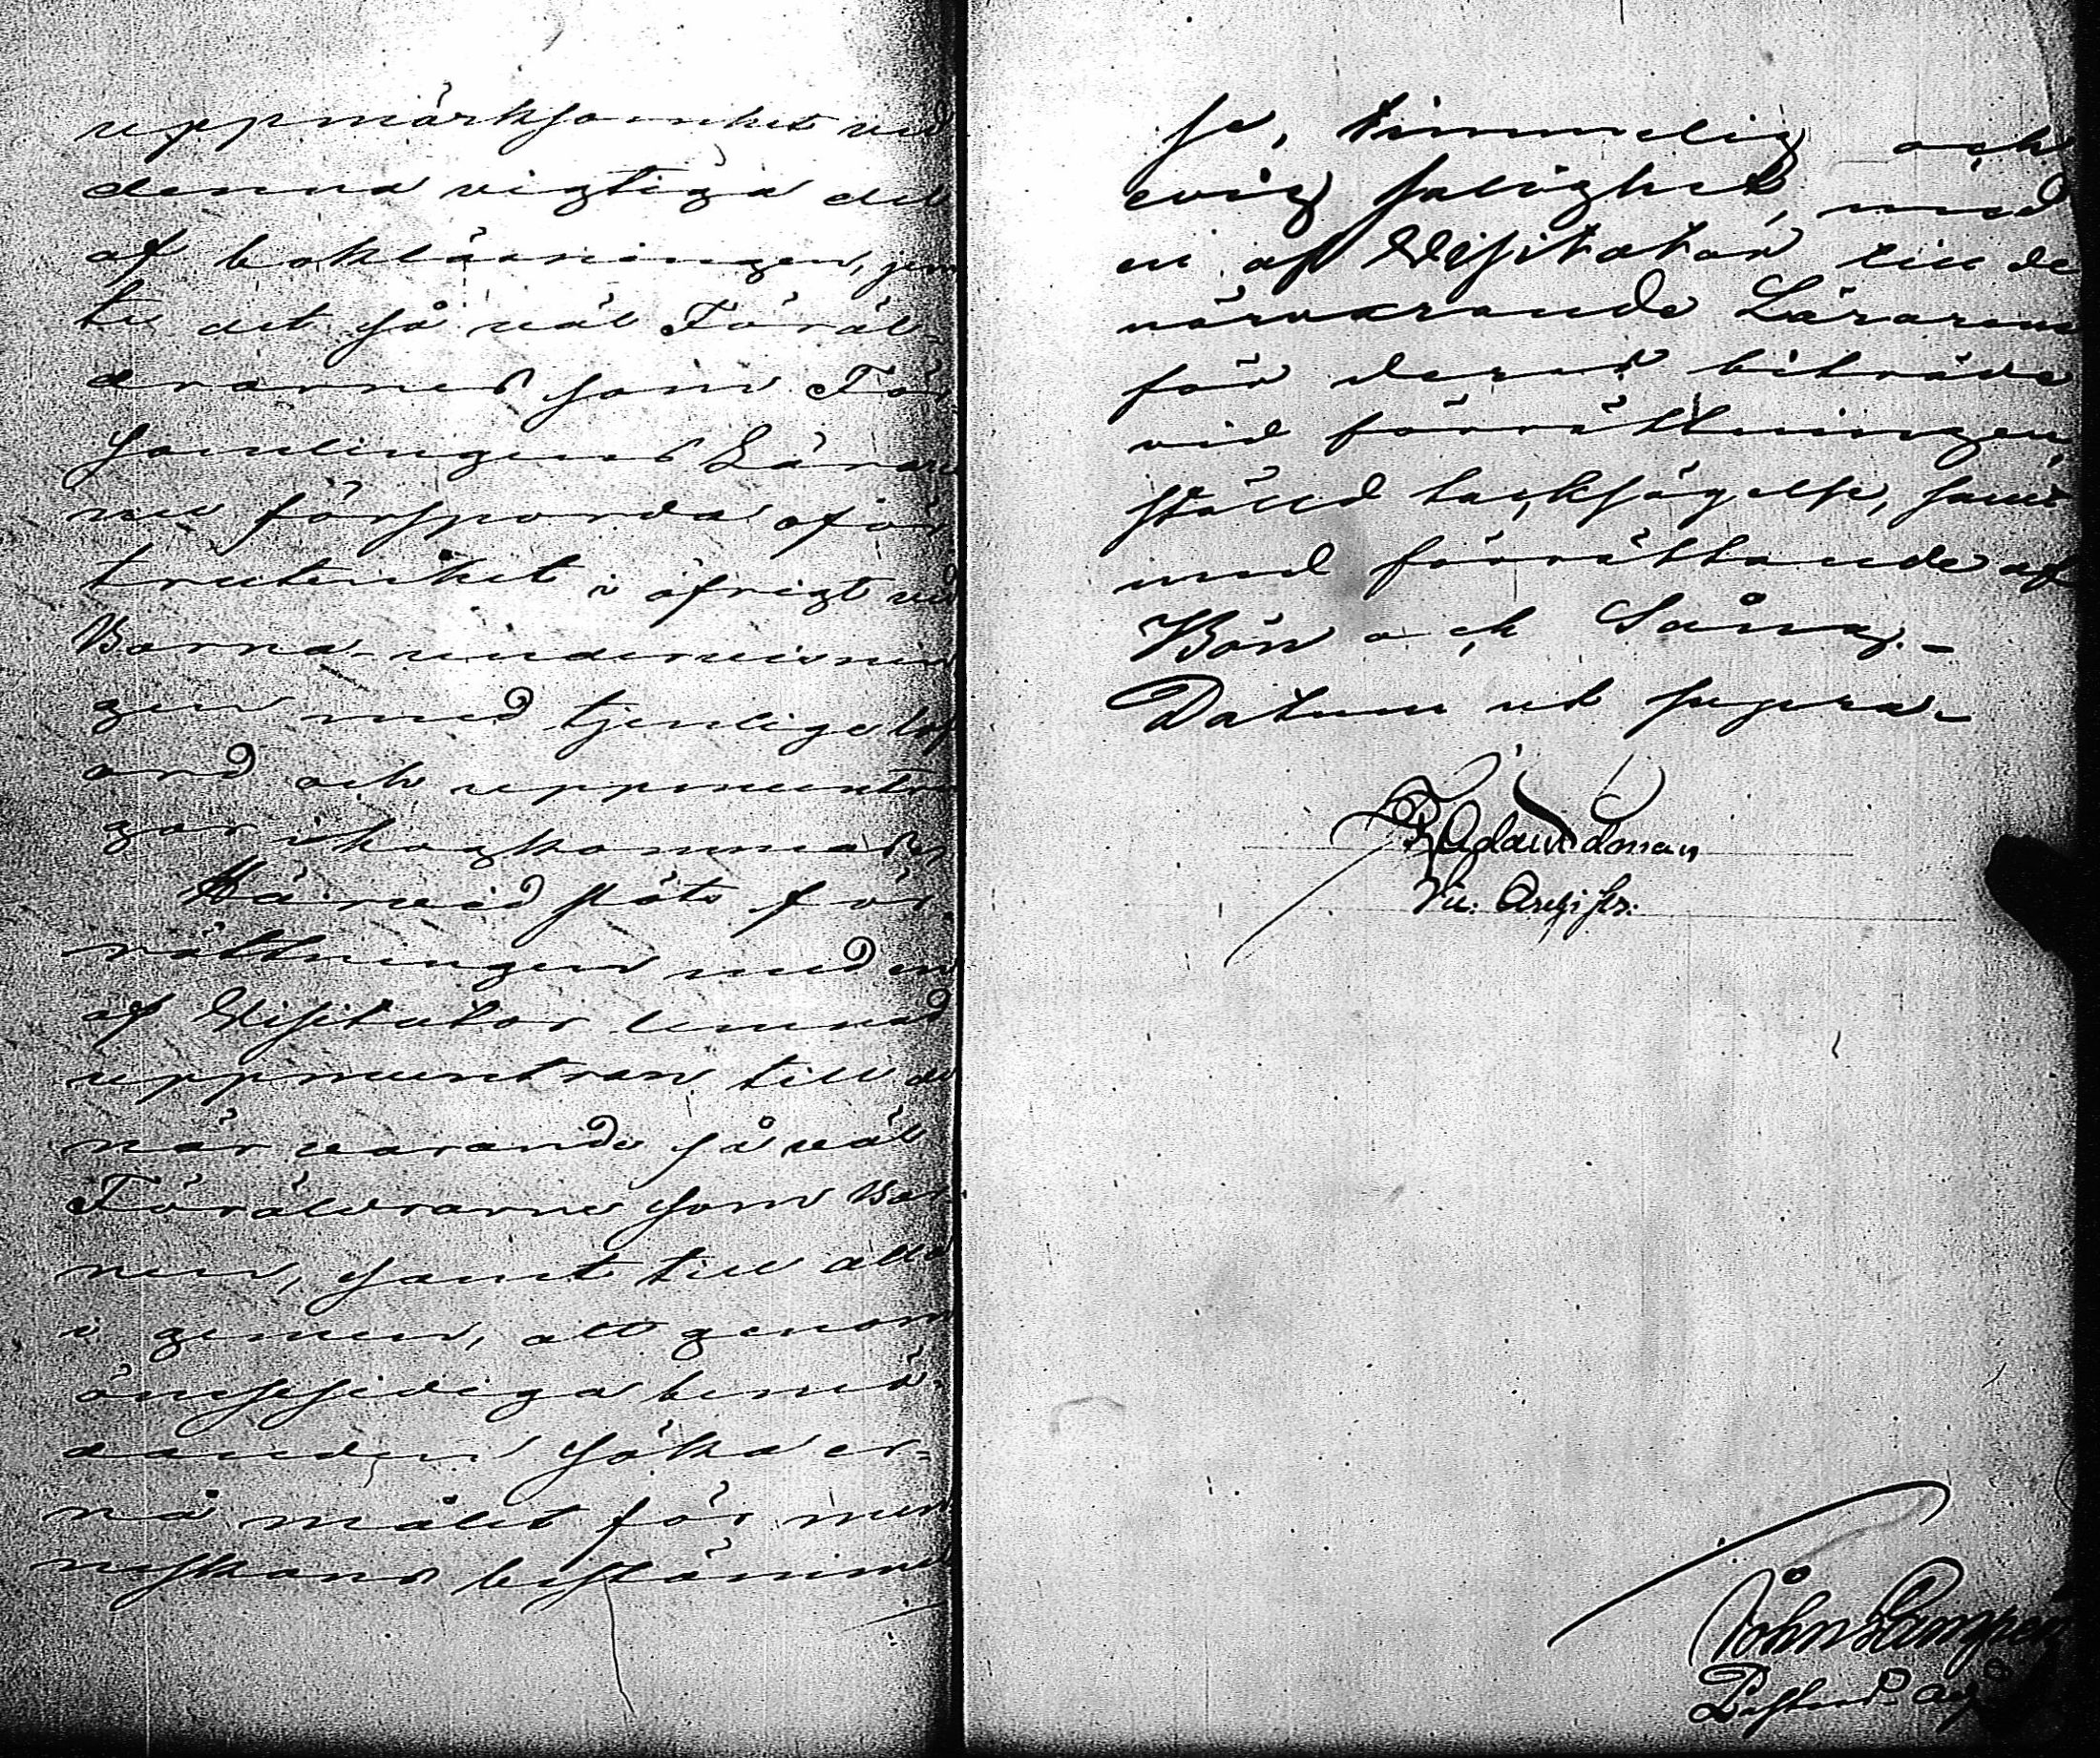 uppmärksamhet vid
denna vigtiga del
af bokläsningen, jem
te det så väl Föräl-
drarnes som För
samlingens Lärare
nu försporda oför
trutenhet i öfrigt vid
Barna-undervisnin
gen med tjenliga lof
ord och uppmuntrin
gar ihogkommades
Härvid slöts för-
rättningen med en
af Visitator lemnad
uppmuntran till de
närvarande så väl
Föräldrarne som Bar
nen, samt till alla
i gemen, att genom
ömsesidiga bemö-
danden söka er-
nå målet för men
niskans bestämmel
se, timmelig och
evig salighet, med
en af Visitator till de
närvarande Lärarene
för deras biträde
vid förrättningen,
ställd tacksägelse, samt
med förrättande af
Bön och Sång.-
Datum ut supera-
Adam
Vic:
John